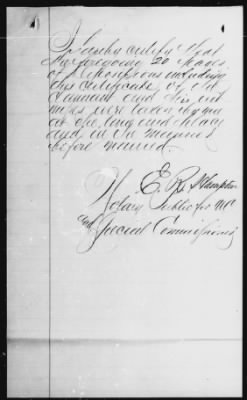 I hereby certify that
the foregoing 20 pages
of depositions including
this certificate of old
and his wit
nesses were taken by me
at the time and place
and in the manner
before named.
E. R. Hampton
Notary Public for NC
and Special Commissioner